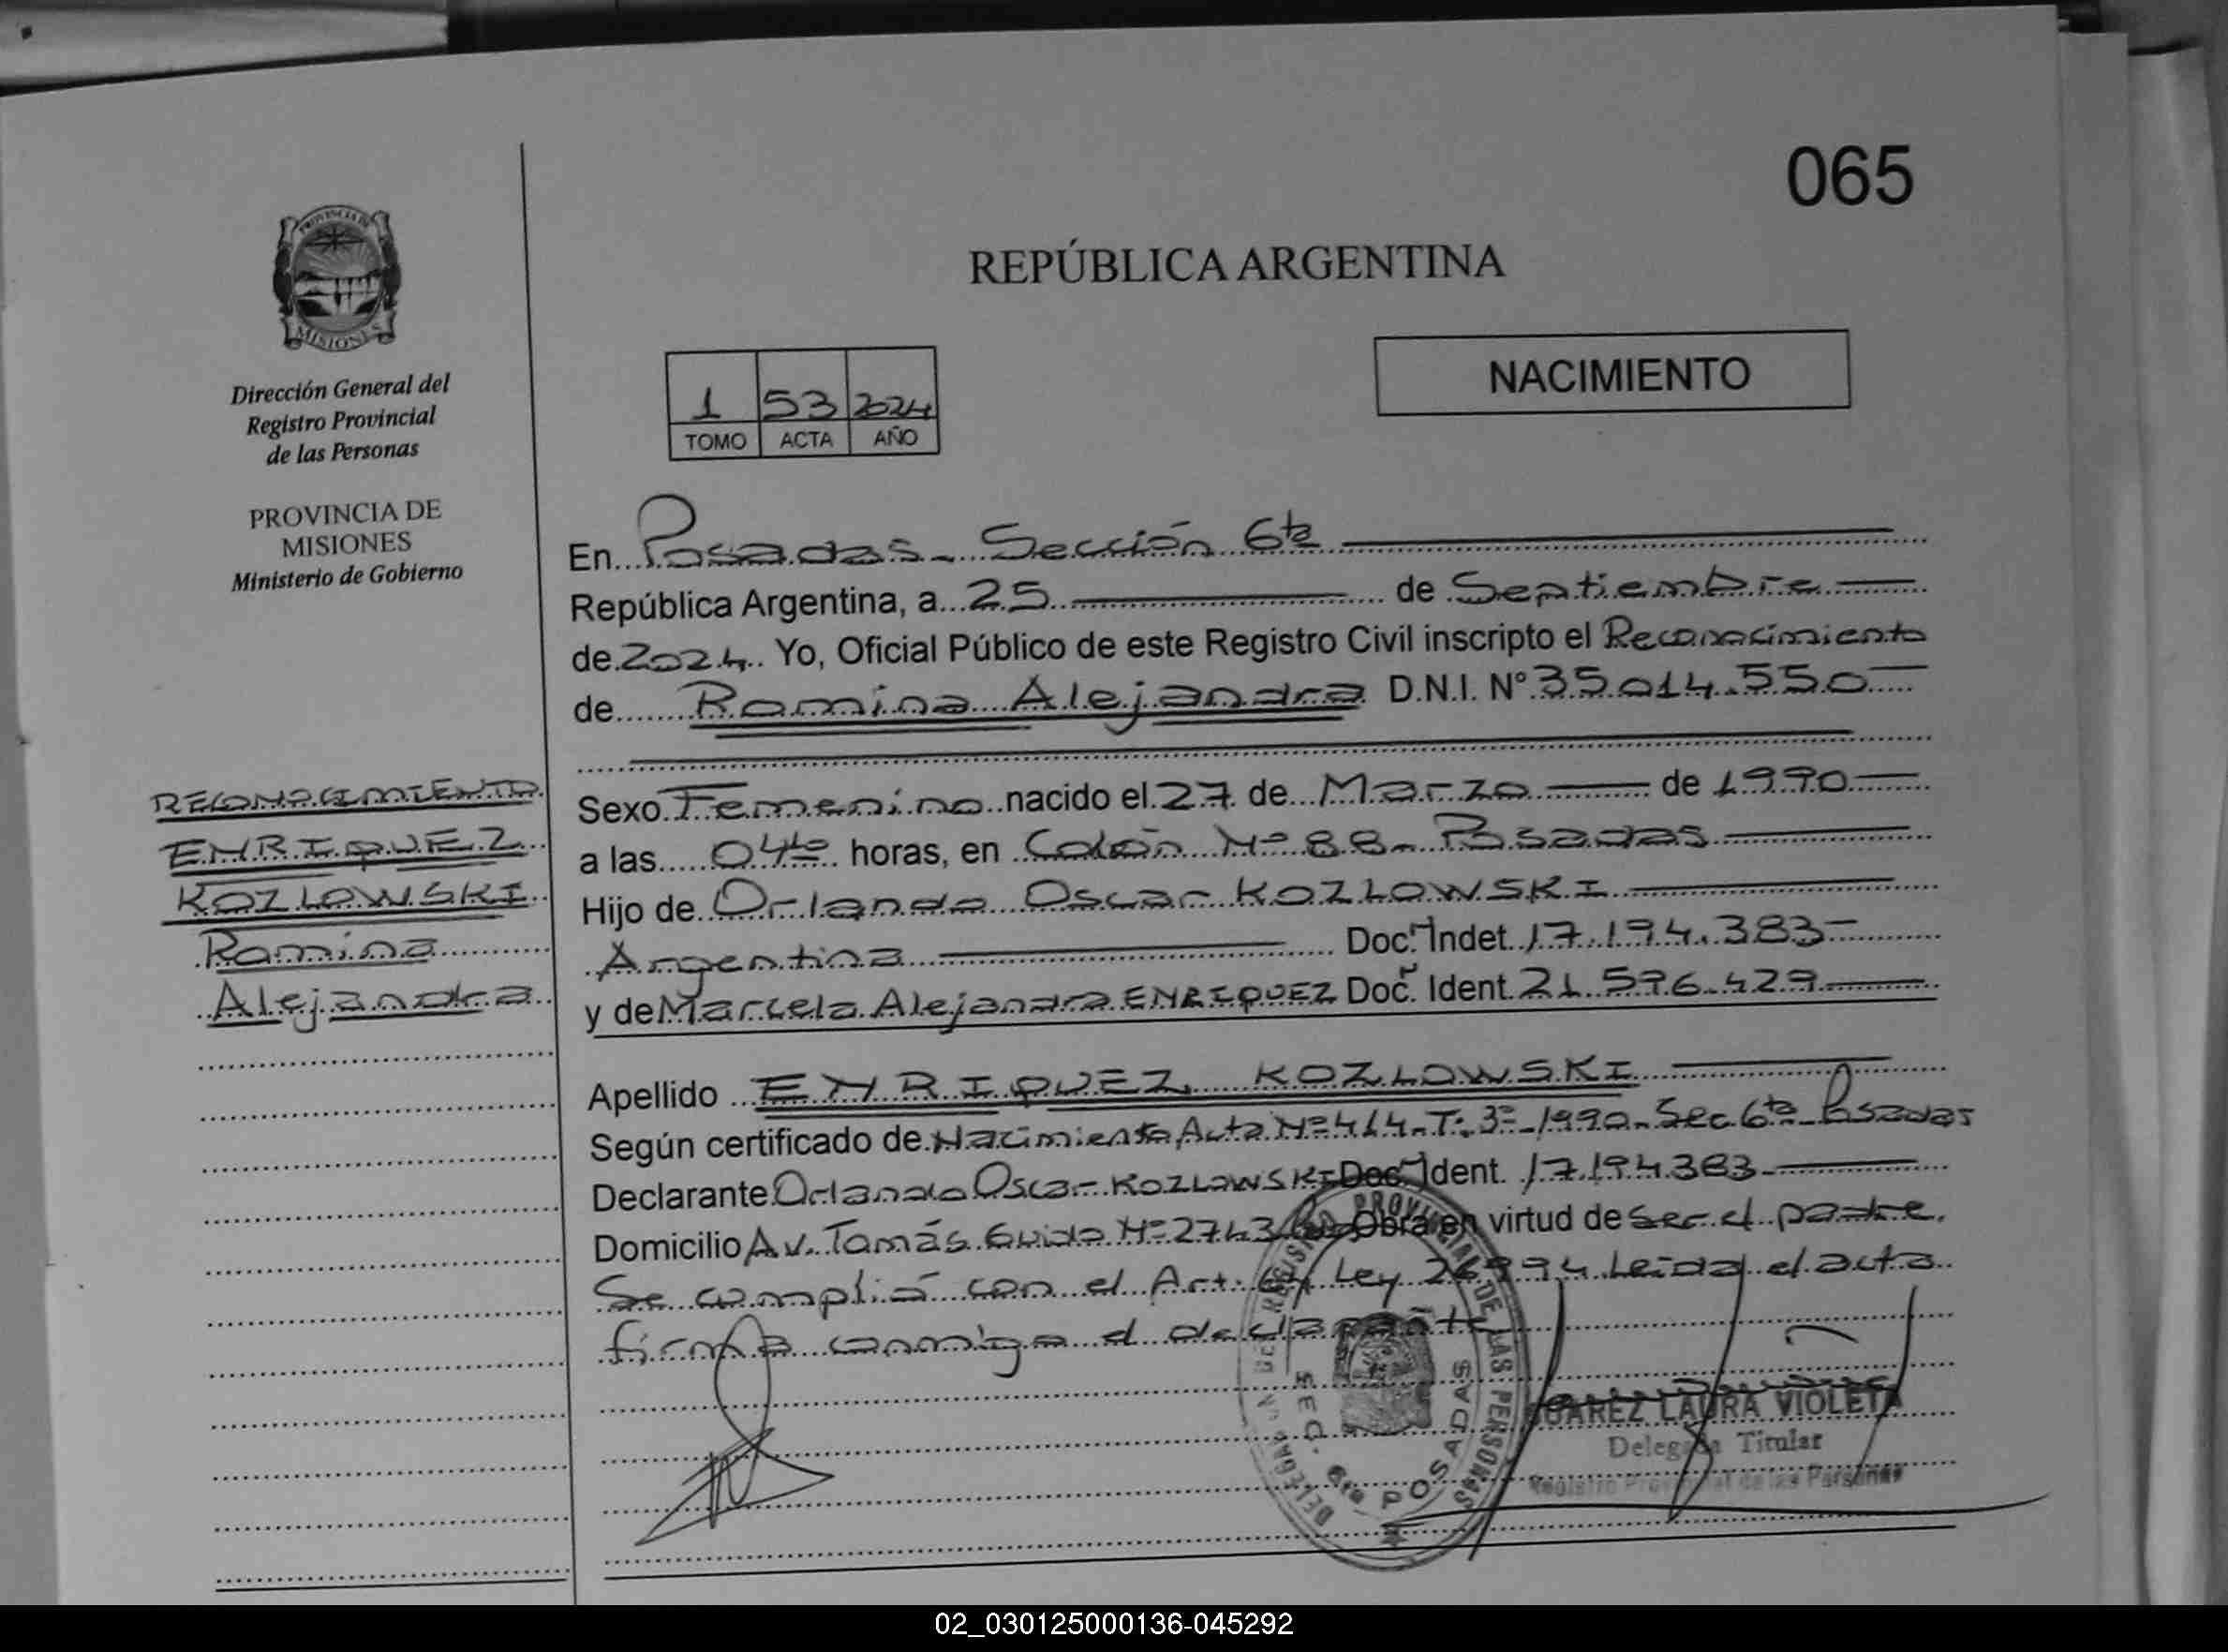 065
PROVINCIA DE
MISIONES
Dirección General del
Registro Provincial
de las Personas
PROVINCIA DE
MISIONES
Ministerio de Gobierno
RECONOCIMIENTO
ENRIQUEZ
KOZLOWSKI
Romina
Alejandra
REPÚBLICA ARGENTINA
NACIMIENTO
1 53 2024
TOMO ACTA AÑO
En Posadas - Sección 6ta
República Argentina, a 25 de Septiembre
de 2024. Yo, Oficial Público de este Registro Civil inscripto el Reconocimiento
de Romina Alejandra D.N.I. Nº 35.014.550
Sexo Femenino nacido el 27 de Marzo de 1990
a las 04to horas, en Colón Nº 88 - Posadas
Hijo de Orlando Oscar KOZLOWSKI
Argentina Doc. Indet. 17.194.383
y de Marcela Alejandra ENRIQUEZ Doc. Ident. 21.596.429
Apellido ENRIQUEZ KOZLOWSKI
Según certificado de Nacimiento Acta Nº 414 - T: 3º - 1990 - Sec. 6ta - Posadas
Declarante Orlando Oscar KOZLOWSKI Doc. Ident. 17.194.383
Domicilio Av. Tomás Guido Nº 2743 Obra en virtud de ser el padre.
Se cumplió con el Art. 64 Ley 26994 Leida el acta
firma conmigo el declarante
DELEGACIÓN DEL REGISTRO PROVINCIAL DE LAS PERSONAS
SEC. 6ta POSADAS
SUAREZ LAURA VIOLETA
Delegada Titular
Registro Provincial de las Personas
02_030125000136-045292